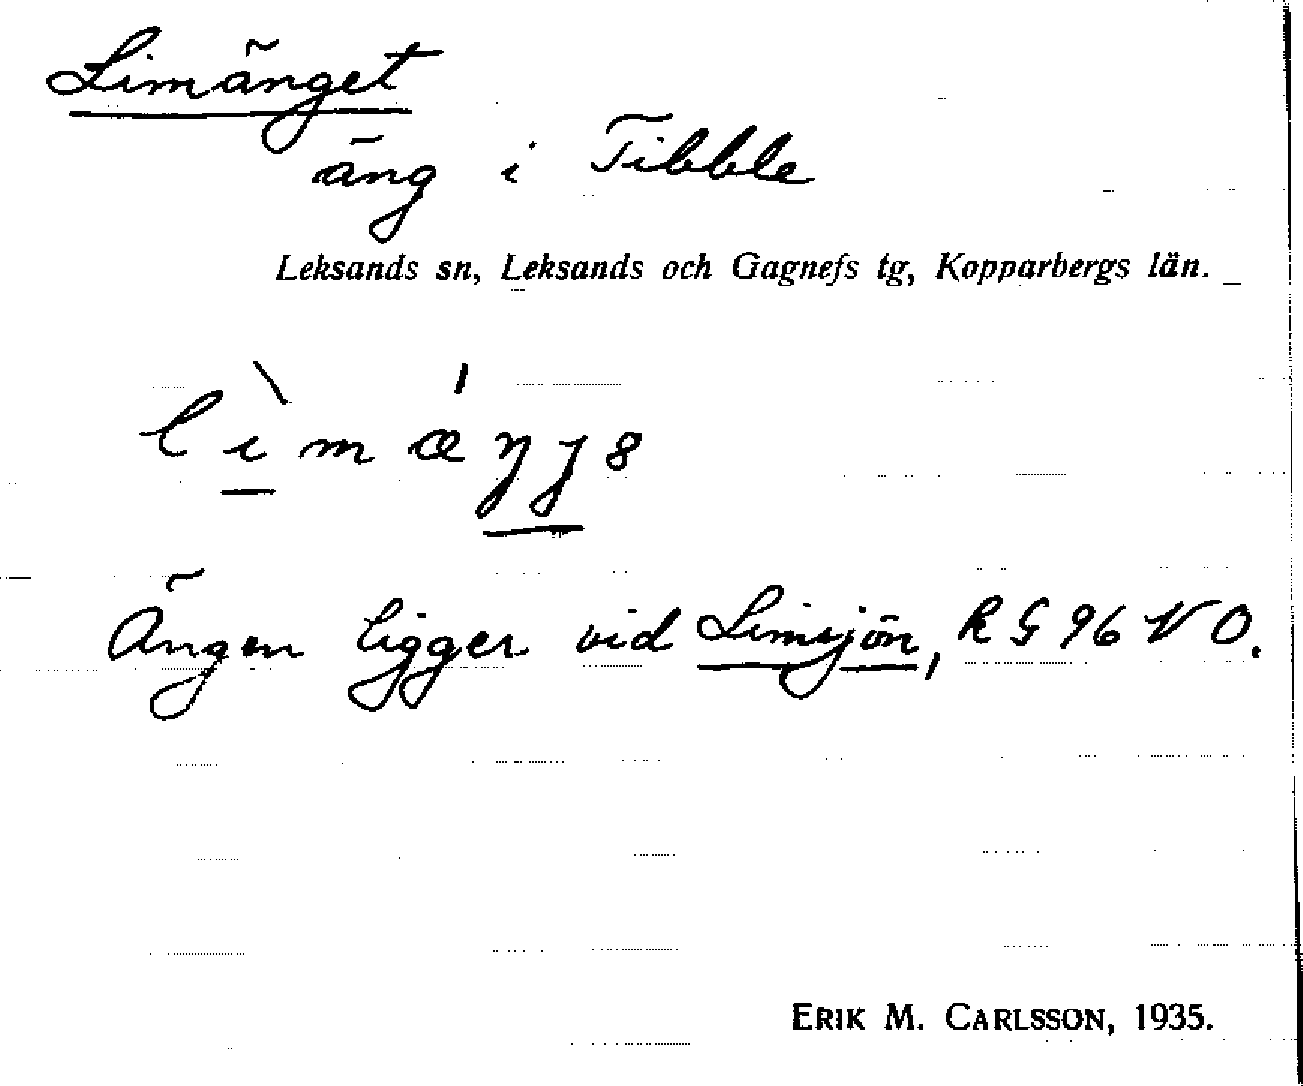 Limänget
äng i Tibble
Leksands sn, Leksands och Gagnefs tg, Kopparbergs län.
Ängen ligger vid Limsjön, R G 96 N O.
ERIK M. CARLSSON, 1935.